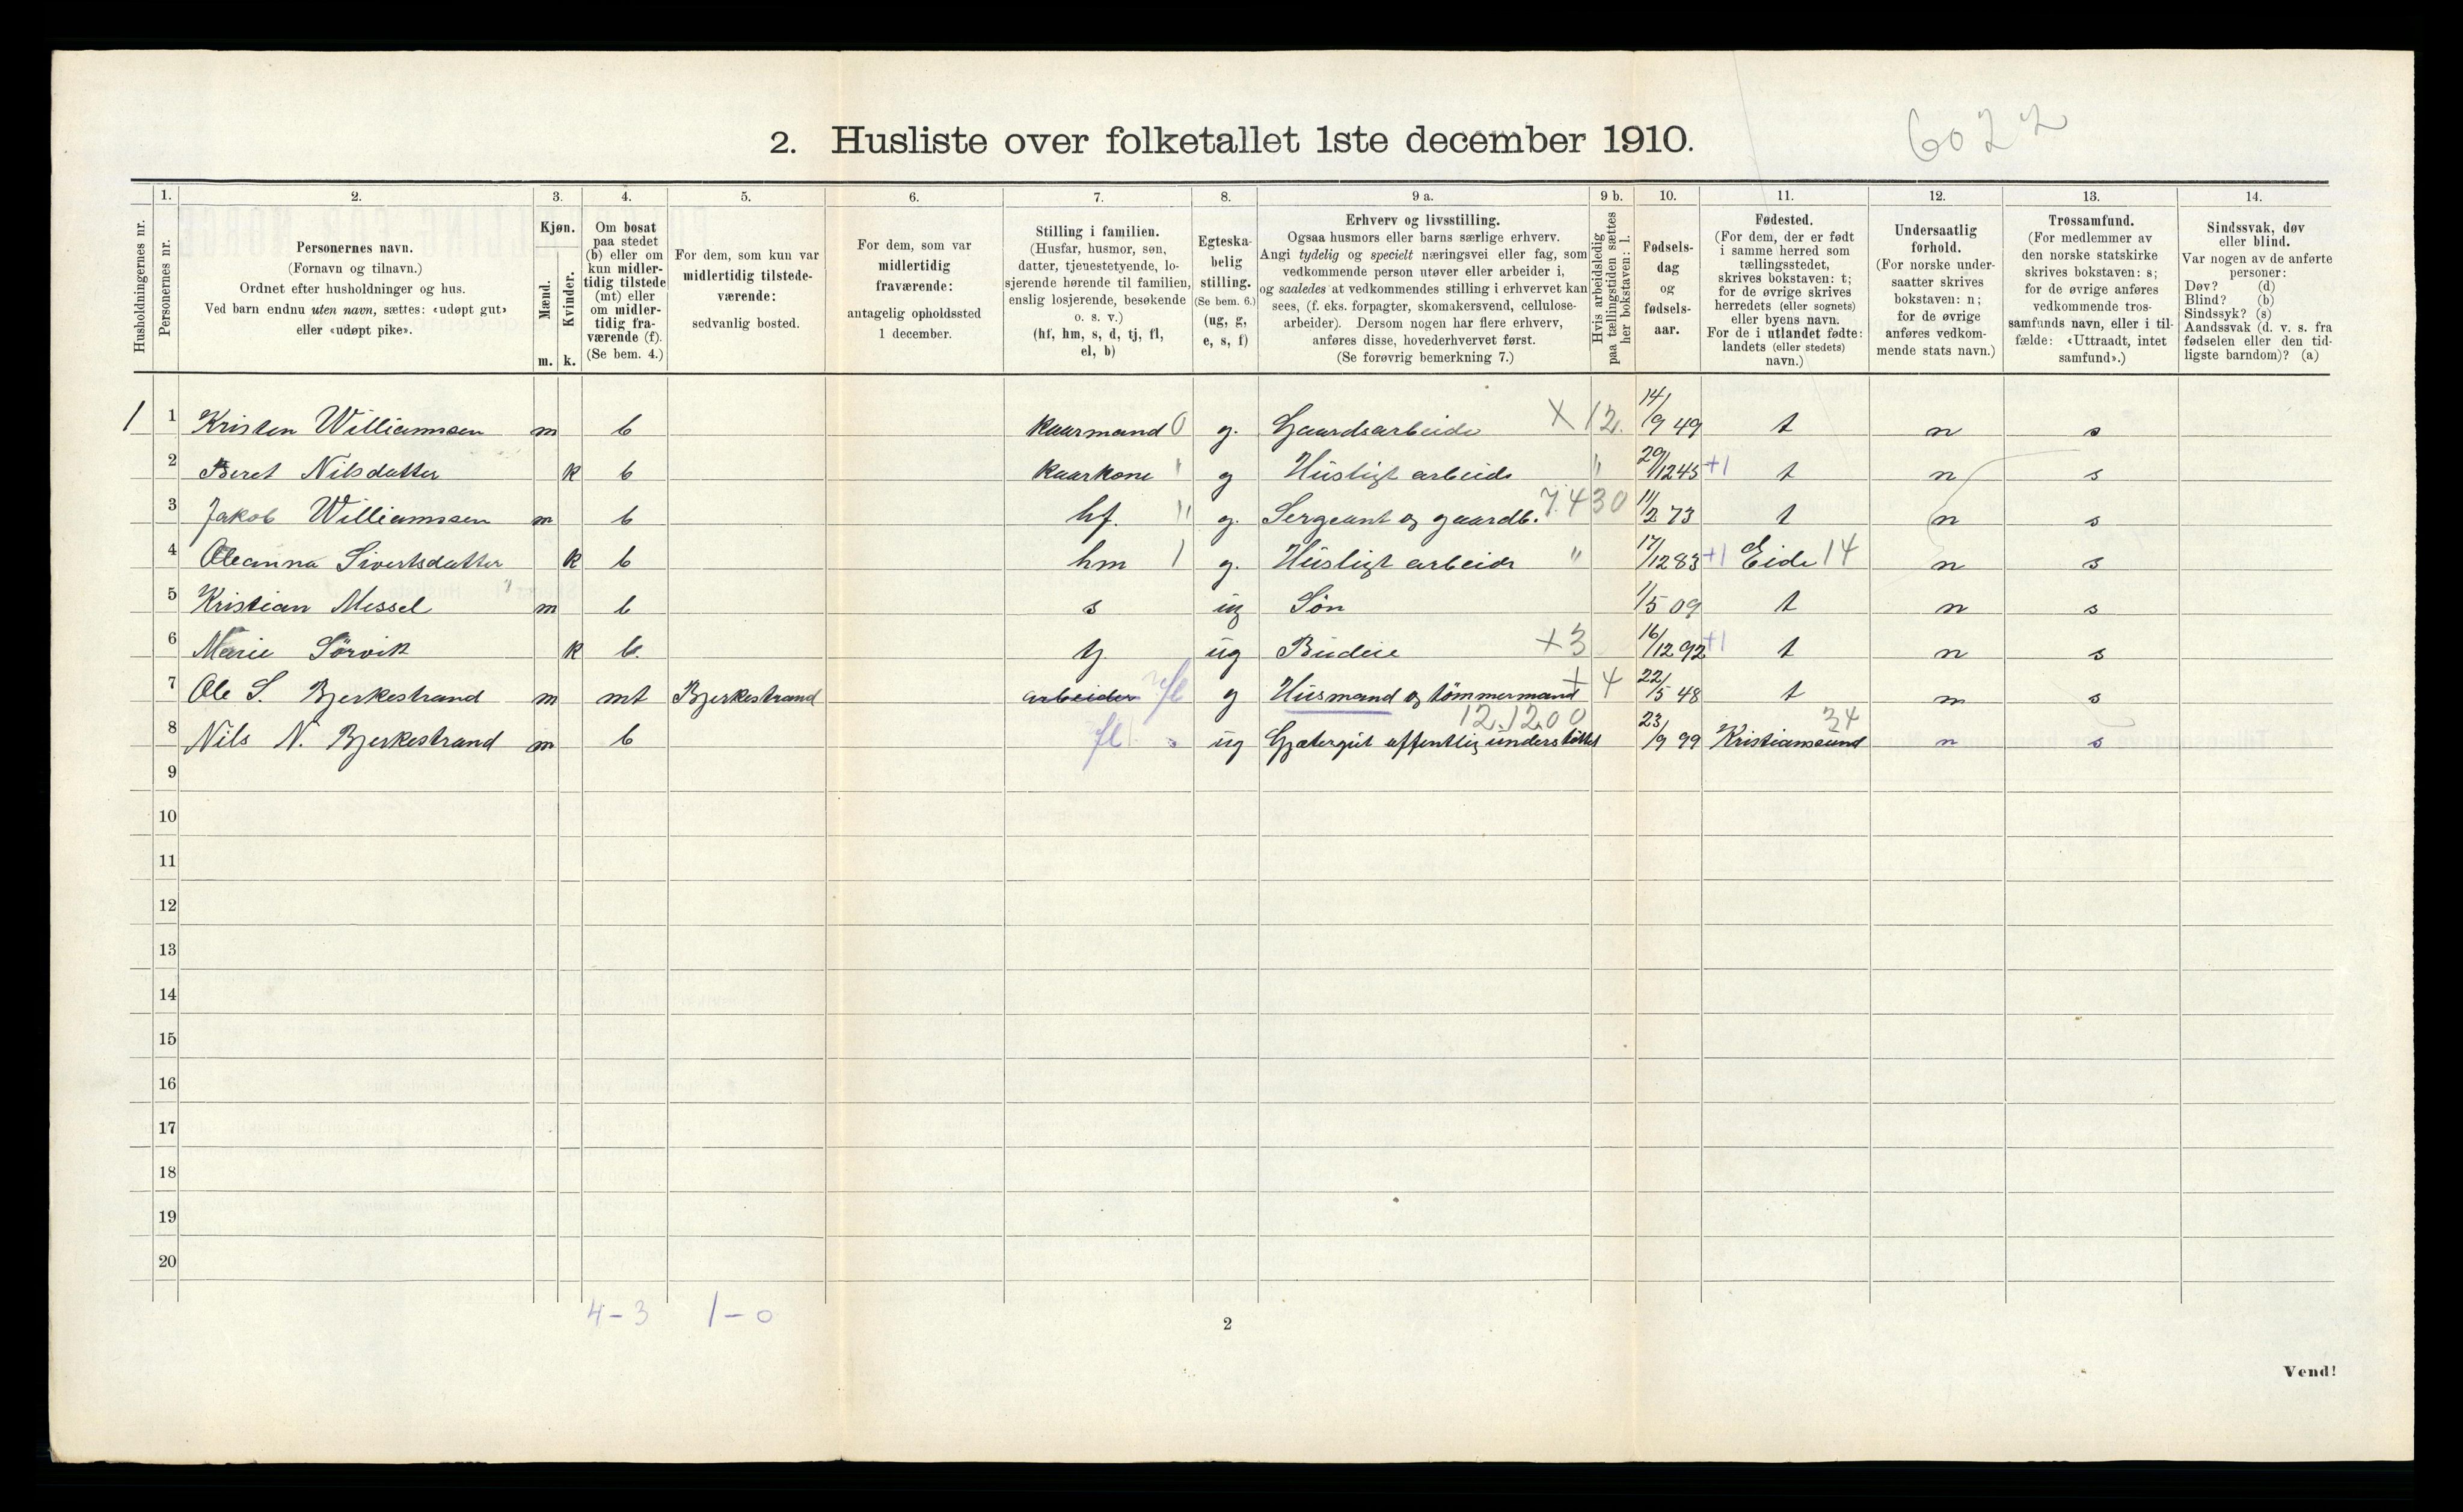 2. Husliste over folketallet 1ste december 1910.
6022
Husholdningernes nr.
1. Personernes nr.
2. Personernes navn.
(Fornavn og tilnavn.)
Ordnet efter husholdninger og hus.
Ved barn endnu uten navn, sættes: «udøpt gut»
eller «udøpt pike».
3. Kjøn.
Mænd. m.
Kvinder. k.
4. Om bosat
paa stedet
(b) eller om
kun midler-
tidig tilstede
(mt) eller
om midler-
tidig fra-
værende (f).
(Se bem. 4.)
5. For dem, som kun var
midlertidig tilstede-
værende:
sedvanlig bosted.
6. For dem, som var
midlertidig
fraværende:
antagelig opholdssted
1 december.
7. Stilling i familien.
(Husfar, husmor, søn,
datter, tjenestetyende, lo-
sjerende hørende til familien,
enslig losjerende, besøkende
o. s. v.)
(hf, hm, s, d, tj, fl,
el, b)
8. Egteska-
belig
stilling.
(Se bem. 6.)
(ug, g,
e, s, f)
9 a. Erhverv og livsstilling.
Ogsaa husmors eller barns særlige erhverv.
Angi tydelig og specielt næringsvei eller fag, som
vedkommende person utøver eller arbeider i,
og saaledes at vedkommendes stilling i erhvervet kan
sees, (f. eks. forpagter, skomakersvend, cellulose-
arbeider). Dersom nogen har flere erhverv,
anføres disse, hovederhvervet først.
(Se forøvrig bemerkning 7.)
9 b. Hvis arbeidsledig
paa tællingstiden sættes
her bokstaven: l.
10. Fødsels-
dag
og
fødsels-
aar.
11. Fødested.
(For dem, der er født
i samme herred som
tællingsstedet,
skrives bokstaven: t;
for de øvrige skrives
herredets (eller sognets)
eller byens navn.
For de i utlandet fødte:
landets (eller stedets)
navn.)
12. Undersaatlig
forhold.
(For norske under-
saatter skrives
bokstaven: n;
for de øvrige
anføres vedkom-
mende stats navn.)
13. Trossamfund.
(For medlemmer av
den norske statskirke
skrives bokstaven: s;
for de øvrige anføres
vedkommende tros-
samfunds navn, eller i til-
fælde: «Uttraadt, intet
samfund».)
14. Sindssvak, døv
eller blind.
Var nogen av de anførte
personer:
Døv? (d)
Blind? (b)
Sindssyk? (s)
Aandssvak (d. v. s. fra
fødselen eller den tid-
ligste barndom)? (a)
1 1 Kristen Williamsen m b kaarmand 0 g. Gaardsarbeide X 12. 14/9 49 t n s
2 Beret Nilsdatter k b kaarkone " g Husligt arbeide " 29/12 45 +1 t n s
3 Jakob Williamssen m b hf. " g. Sergeant og gaardb. 7.430 11/2 73 t n s
4 Oleanna Sivertsdatter k b hm 1 g. Husligt arbeide " 17/12 83 +1 Eide 14 n s
5 Kristian Messel m b s ug Sön 1/5 09 t n s
6 Marie Sörvik k b. tj. ug Budeie +3 16/12 92 +1 t n s
7 Ole S. Bjerkestrand m mt Bjerkestrand arbeider fl g Husmand og tömmermand + 4 22/5 48 t n s
8 Nils N. Bjerkestrand m b fl s ug Gjætergut offentlig understöttet 12.1200 23/9 99 Kristiansund 34 n s
9
10
11
12
13
14
15
16
17
18
19
20
4-3 1-0
2
Vend!